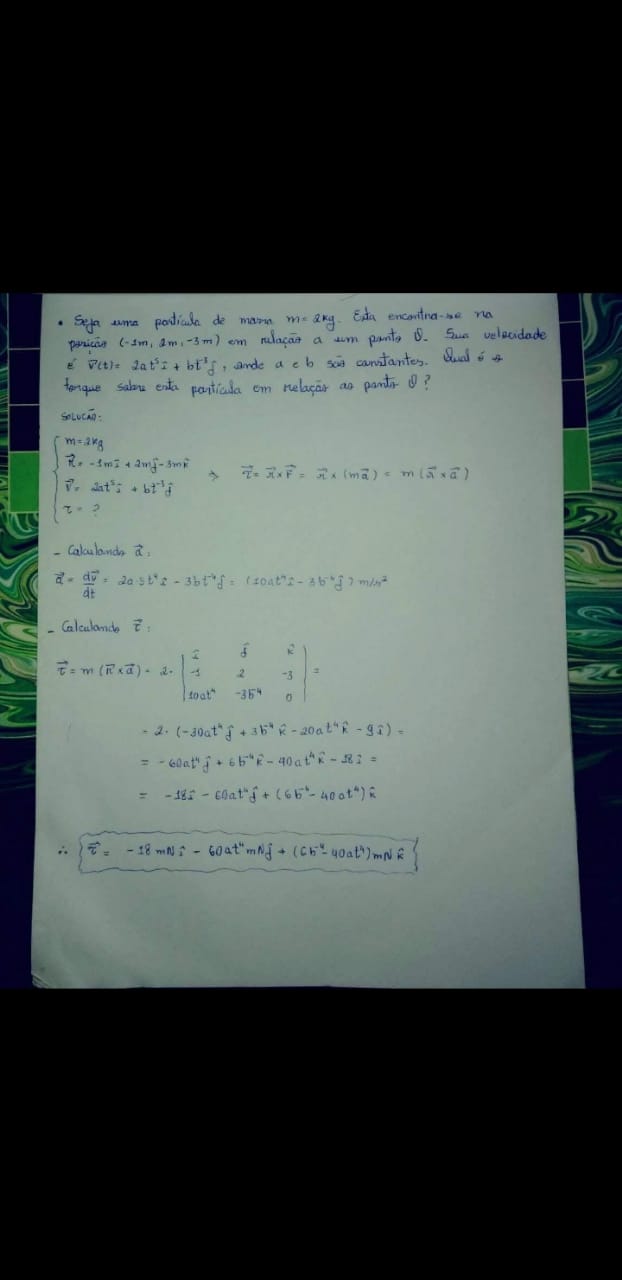 • Seja uma partícula de massa m=2kg. Esta encontra-se na
posição (-1m, 2m, -3m) em relação a um ponto O. Sua velocidade
é v⃗(t)= 2at⁵î + bt⁻³ĵ, onde a e b são constantes. Qual é o
torque sobre esta partícula em relação ao ponto O?
SOLUÇÃO:
m=2kg
r⃗= -1mî + 2mĵ-3mk̂
v⃗= 2at⁵î + bt⁻³ĵ ⇒ τ⃗= r⃗×F⃗ = r⃗×(ma⃗) = m(r⃗×a⃗)
τ = ?
- Calculando a⃗:
a⃗ = dv⃗/dt = 2a·5t⁴î - 3bt⁻⁴ĵ = (10at⁴î - 3b⁻⁴ĵ) m/s²
- Calculando τ⃗:
î ĵ k̂
τ⃗ = m(r⃗×a⃗) = 2· | -1 2 -3 | =
10at⁴ -3b⁻⁴ 0
= 2·(-30at⁴ĵ + 3b⁻⁴k̂ - 20at⁴k̂ - 9î) =
= -60at⁴ĵ + 6b⁻⁴k̂ - 40at⁴k̂ - 18î =
= -18î - 60at⁴ĵ + (6b⁻⁴ - 40at⁴)k̂
∴ τ⃗ = -18mNî - 60at⁴mNĵ + (6b⁻⁴ - 40at⁴)mNk̂